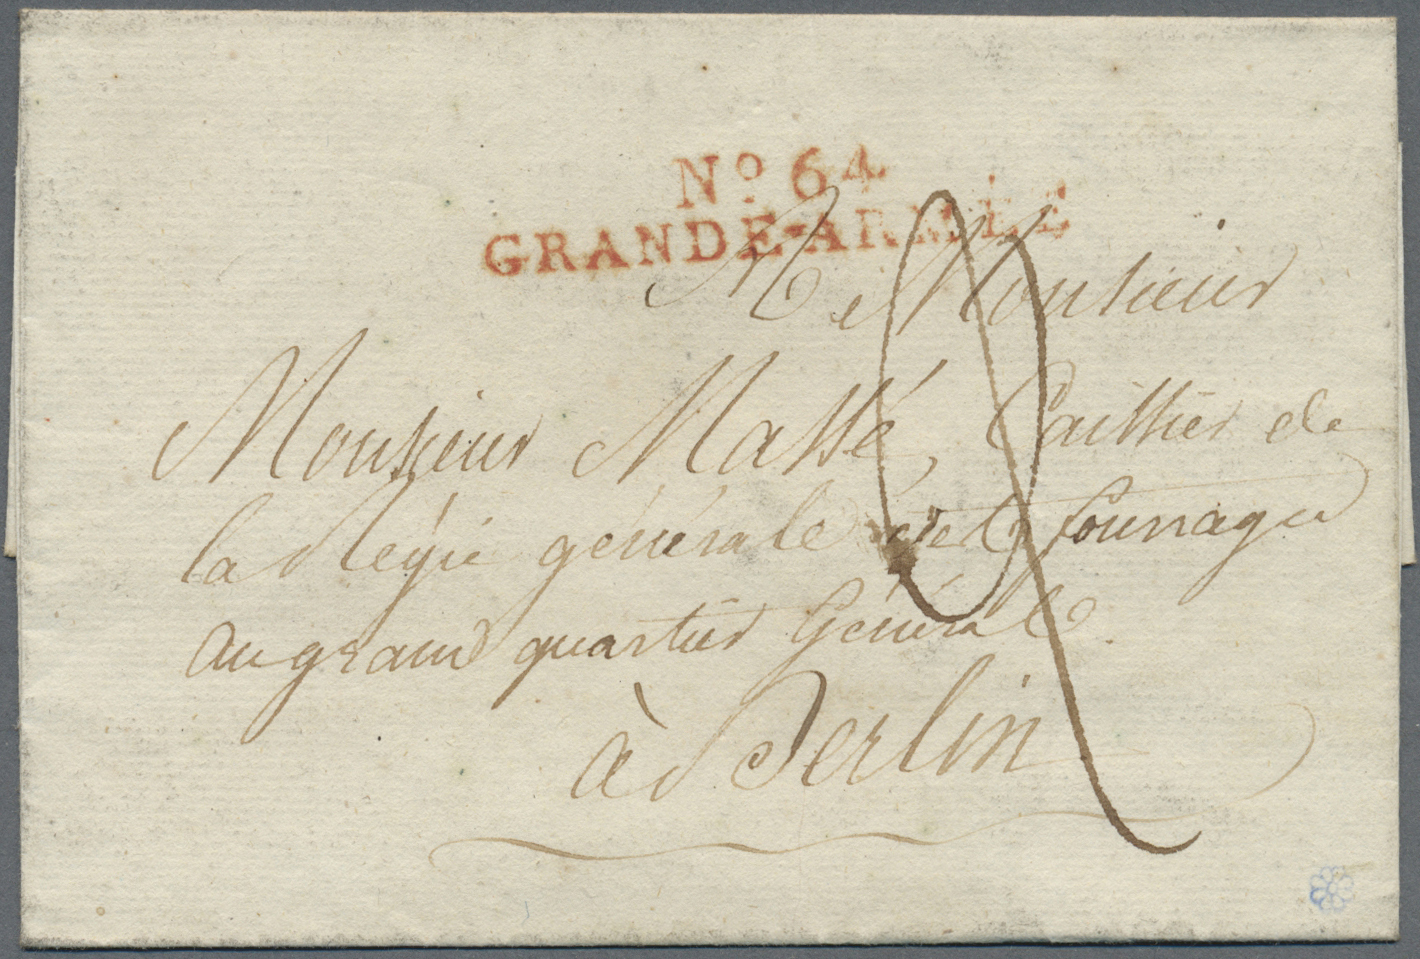 No. 64
GRANDE-ARMÉE
A Monsieur
Monsieur Massé, Caissier de
la Régie générale des fourrages
au grand quartier Général
à Berlin